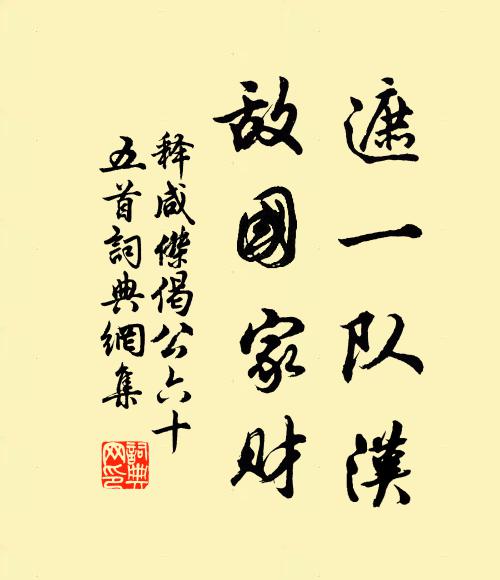 遮一队漢
敌國家財
释咸傑偈公六十
五首詞典網集
詞典网印